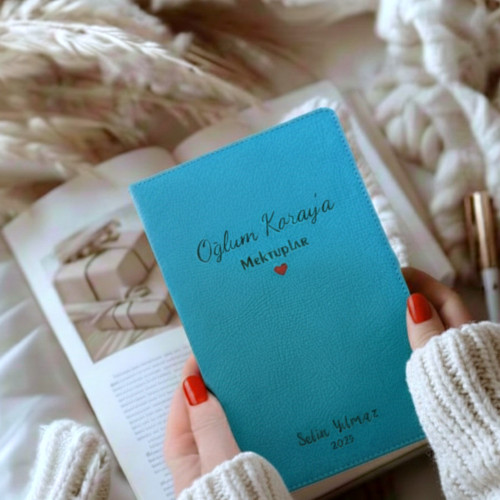 Oğlum Koray'a
Mektuplar
Selin Yılmaz
2025